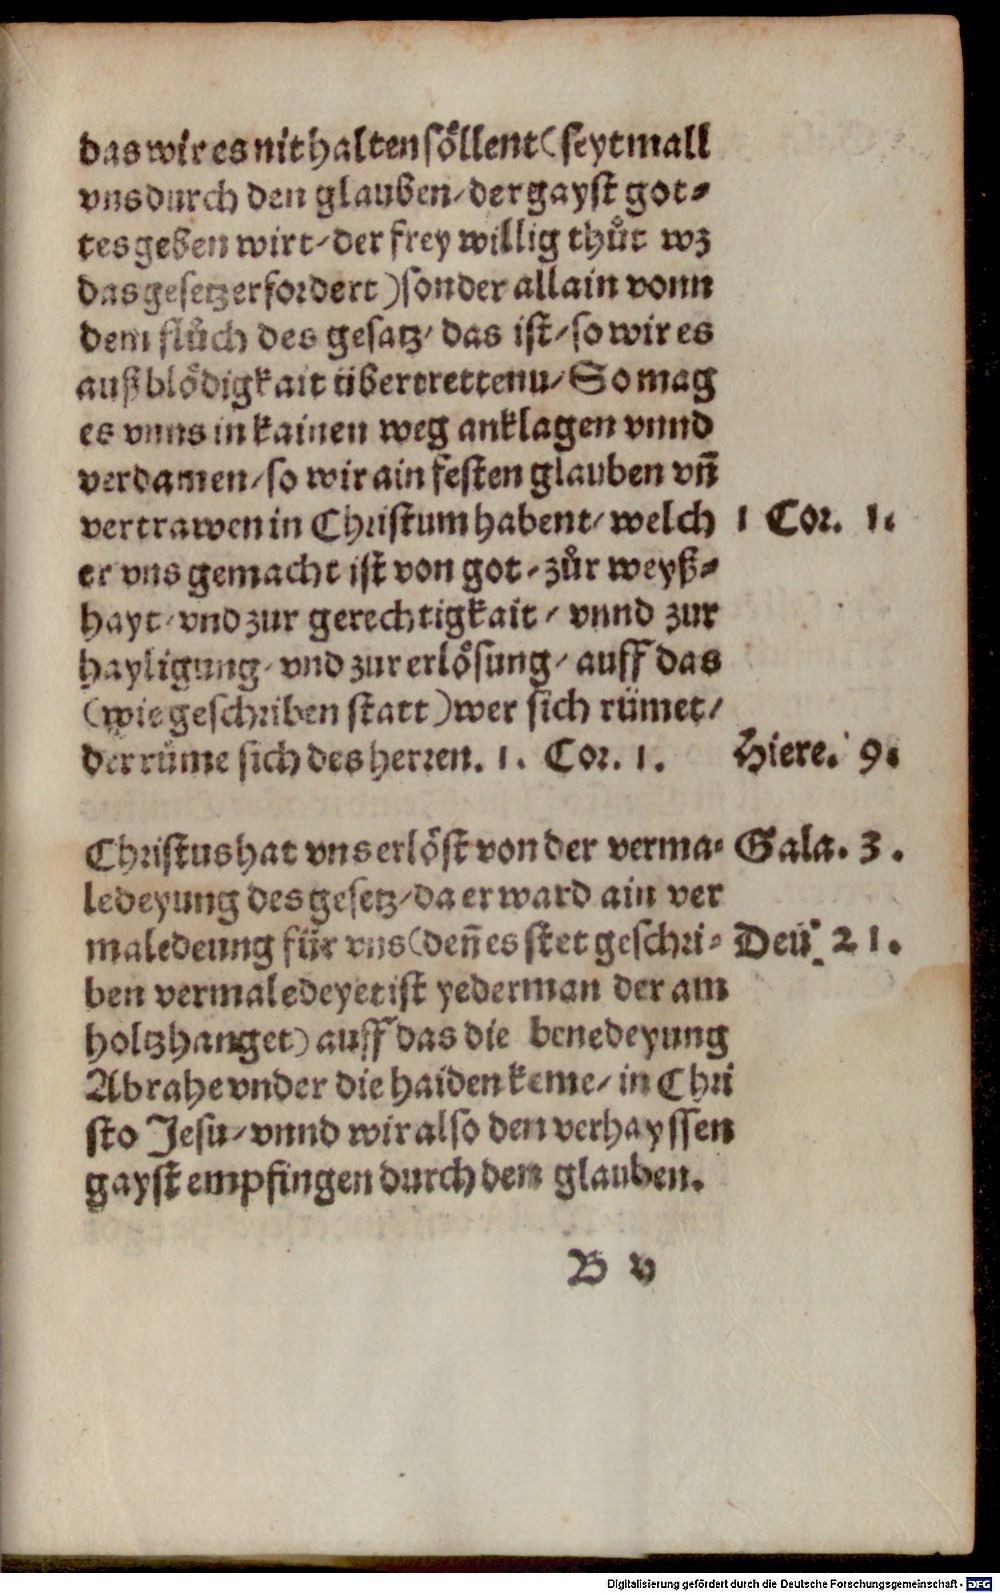 das wir es nit halten söllent (seytmall
vns durch den glauben / der gayst got⸗
tes geben wirt / der frey willig thůt wz
das gesetz erfordert) sonder allain vonn
dem flůch des gesatz / das ist / so wir es
auß blödigkait übertrettenn / So mag
es vnns in kainen weg anklagen vnnd
verdamen / so wir ain festen glauben vñ
vertrawen in Christum habent / welch 1 Cor. 1.
er vns gemacht ist von got / zůr weyß⸗
hayt / vnd zur gerechtigkait / vnnd zur
hayligung / vnd zur erlösung / auff das
(wie geschriben statt) wer sich rümet /
der rüme sich des herren. 1. Cor. 1. Hiere. 9.
Christus hat vns erlöst von der verma⸗ Gala. 3.
ledeyung des gesetz / da er ward ain ver
maledeung für vns (deñ es stet geschri⸗ Deü. 21.
ben vermaledeyet ist yederman der am
holtz hanget) auff das die benedeyung
Abrahe vnder die haiden keme / in Chri
sto Jesu / vnnd wir also den verhayssen
gayst empfingen durch den glauben.
B v
Digitalisierung gefördert durch die Deutsche Forschungsgemeinschaft - DFG